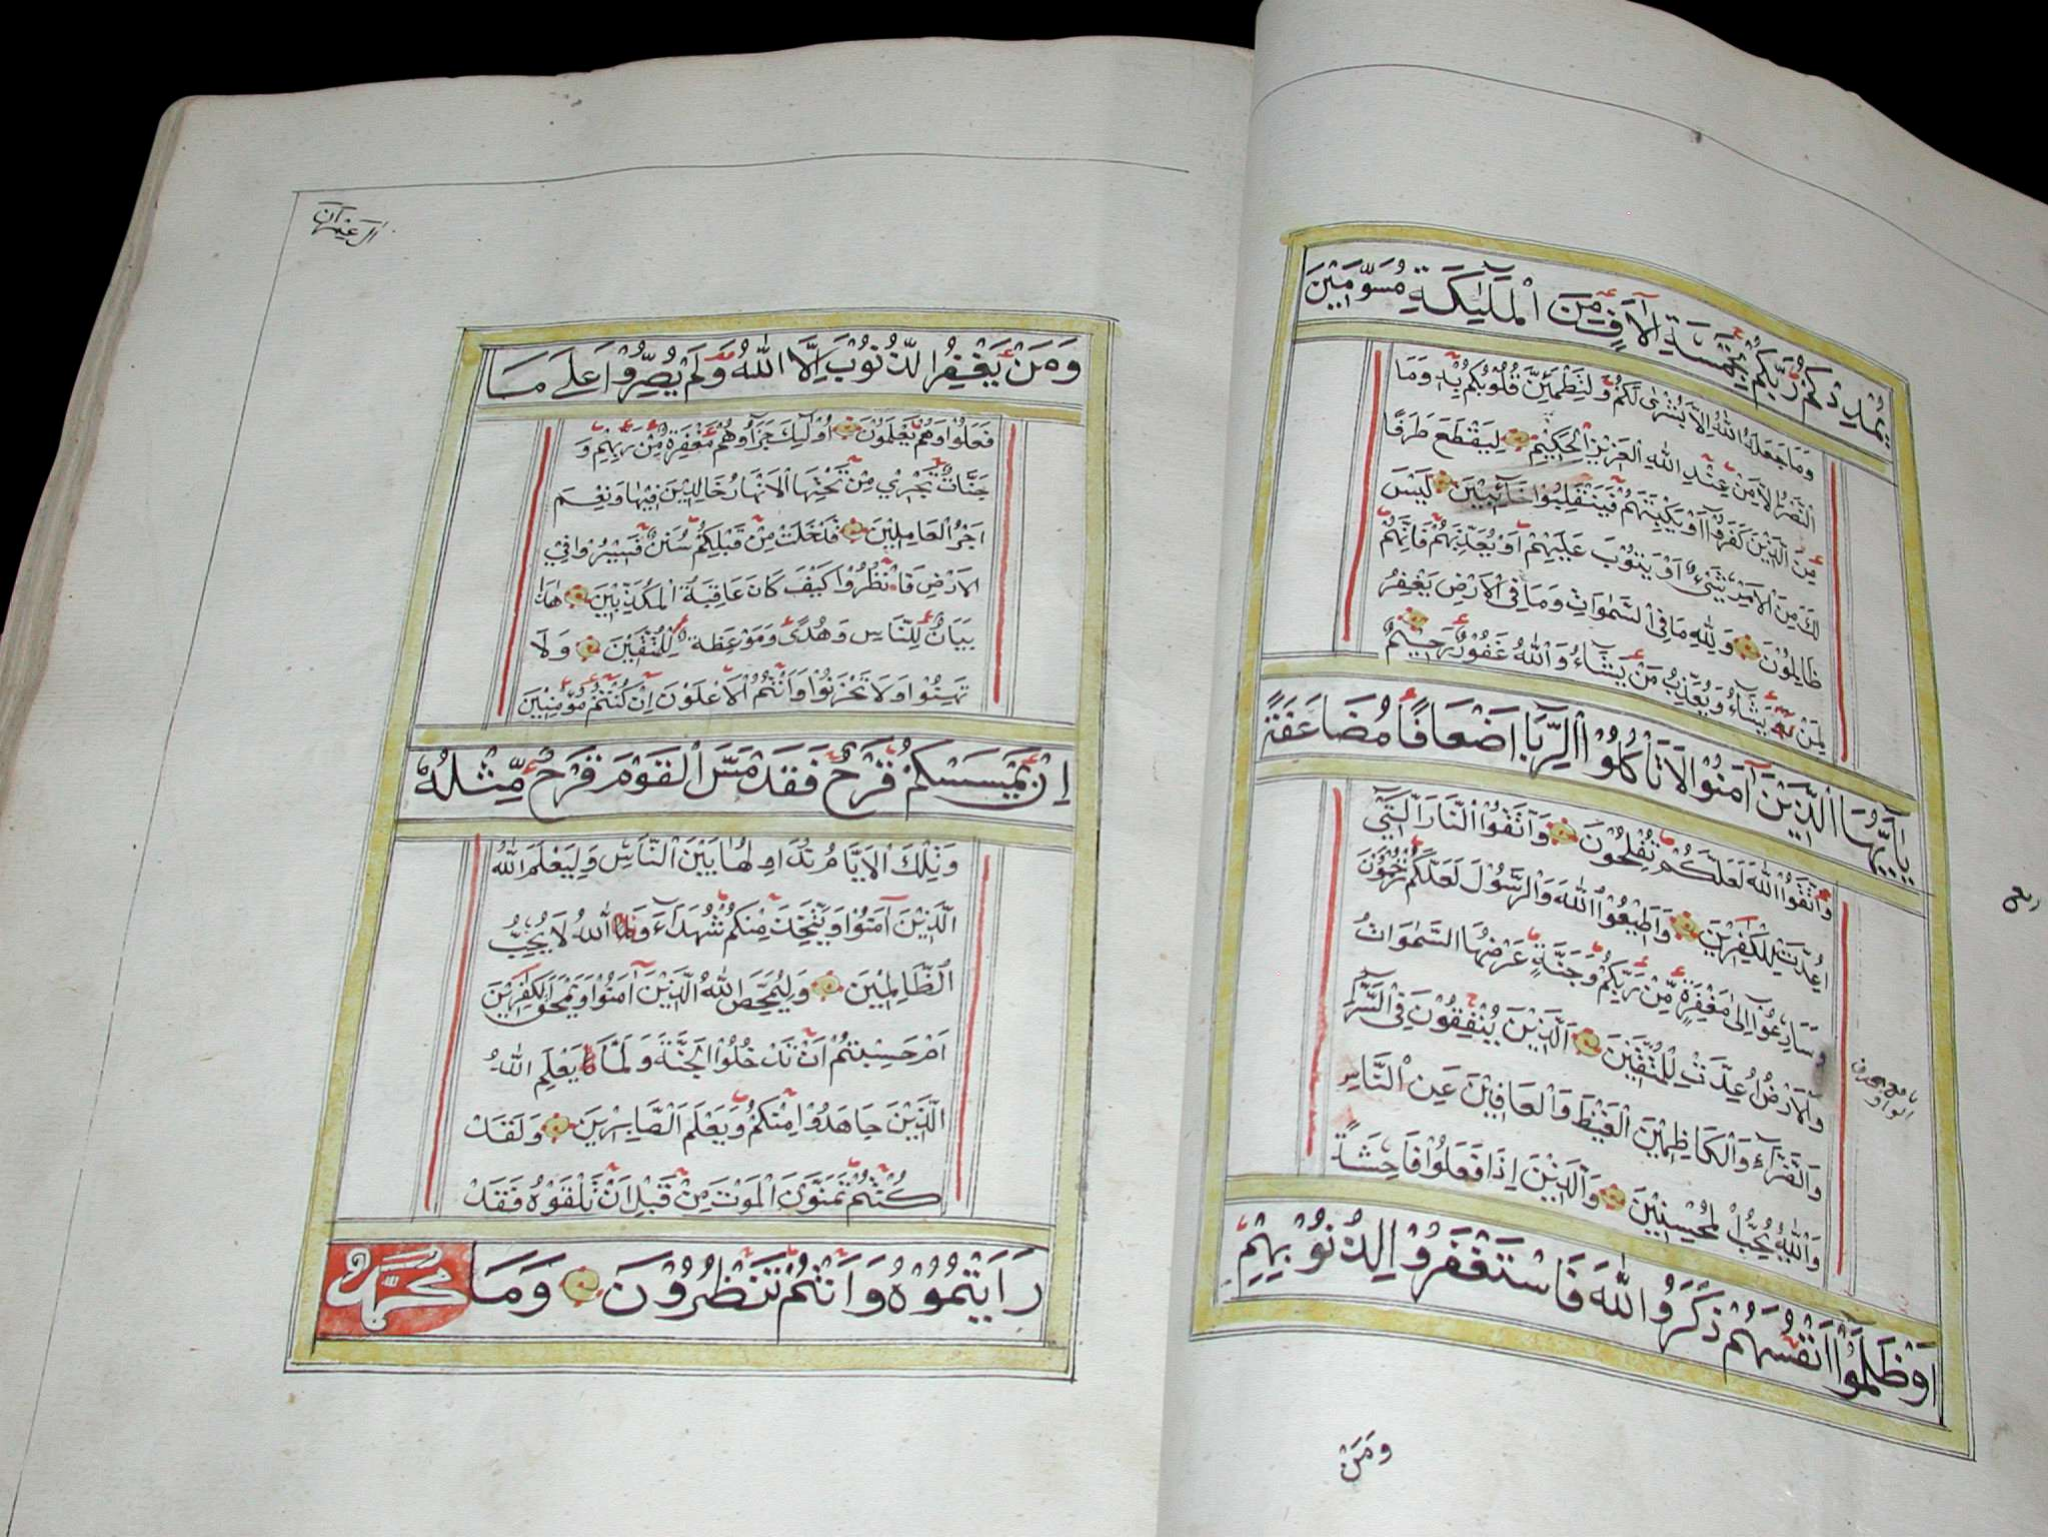 يُمْدِدْكُمْ رَبُّكُمْ بِخَمْسَةِ اٰلَافٍ مِنَ الْمَلٰٓئِكَةِ مُسَوِّمِيْنَ
وَمَا جَعَلَهُ اللهُ اِلَّا بُشْرٰى لَكُمْ وَلِتَطْمَئِنَّ قُلُوْبُكُمْ بِهٖ وَمَا
النَّصْرُ اِلَّا مِنْ عِنْدِ اللهِ الْعَزِيْزِ الْحَكِيْمِ لِيَقْطَعَ طَرَفًا
مِنَ الَّذِيْنَ كَفَرُوْا اَوْ يَكْبِتَهُمْ فَيَنْقَلِبُوْا خَائِبِيْنَ لَيْسَ
لَكَ مِنَ الْاَمْرِ شَيْءٌ اَوْ يَتُوْبَ عَلَيْهِمْ اَوْ يُعَذِّبَهُمْ فَاِنَّهُمْ
ظَالِمُوْنَ وَلِلّٰهِ مَا فِي السَّمٰوَاتِ وَمَا فِي الْاَرْضِ يَغْفِرُ
لِمَنْ يَشَٓاءُ وَيُعَذِّبُ مَنْ يَشَٓاءُ وَاللهُ غَفُوْرٌ رَحِيْمٌ
يَٓا اَيُّهَا الَّذِيْنَ اٰمَنُوْا لَا تَأْكُلُوْا الرِّبَا اَضْعَافًا مُضَاعَفَةً
وَاتَّقُوْا اللهَ لَعَلَّكُمْ تُفْلِحُوْنَ وَاتَّقُوْا النَّارَ الَّتِيْ
اُعِدَّتْ لِلْكٰفِرِيْنَ وَاَطِيْعُوْا اللهَ وَالرَّسُوْلَ لَعَلَّكُمْ تُرْحَمُوْنَ
وَسَارِعُوْا اِلٰى مَغْفِرَةٍ مِّنْ رَبِّكُمْ وَجَنَّةٍ عَرْضُهَا السَّمٰوَاتُ
وَالْاَرْضُ اُعِدَّتْ لِلْمُتَّقِيْنَ اَلَّذِيْنَ يُنْفِقُوْنَ فِي السَّرَّٓاءِ
وَالضَّرَّٓاءِ وَالْكَاظِمِيْنَ الْغَيْظَ وَالْعَافِيْنَ عَنِ النَّاسِ
وَاللهُ يُحِبُّ الْمُحْسِنِيْنَ وَالَّذِيْنَ اِذَا فَعَلُوْا فَاحِشَةً
اَوْ ظَلَمُوْا اَنْفُسَهُمْ ذَكَرُوْا اللهَ فَاسْتَغْفَرُوْا لِذُنُوْبِهِمْ
وَمَنْ
اٰل عِمْرَانَ
وَمَنْ يَغْفِرُ الذُّنُوْبَ اِلَّا اللهُ وَلَمْ يُصِرُّوْا عَلٰى مَا
فَعَلُوْا وَهُمْ يَعْلَمُوْنَ اُوْلٰٓئِكَ جَزَٓاؤُهُمْ مَغْفِرَةٌ مِّنْ رَبِّهِمْ وَ
جَنَّاتٌ تَجْرِيْ مِنْ تَحْتِهَا الْاَنْهَارُ خَالِدِيْنَ فِيْهَا وَنِعْمَ
اَجْرُ الْعَامِلِيْنَ قَدْ خَلَتْ مِنْ قَبْلِكُمْ سُنَنٌ فَسِيْرُوْا فِيْ
الْاَرْضِ فَانْظُرُوْا كَيْفَ كَانَ عَاقِبَةُ الْمُكَذِّبِيْنَ هٰذَا
بَيَانٌ لِلنَّاسِ وَهُدًى وَمَوْعِظَةٌ لِلْمُتَّقِيْنَ وَلَا
تَهِنُوْا وَلَا تَحْزَنُوْا وَاَنْتُمُ الْاَعْلَوْنَ اِنْ كُنْتُمْ مُؤْمِنِيْنَ
اِنْ يَمْسَسْكُمْ قَرْحٌ فَقَدْ مَسَّ الْقَوْمَ قَرْحٌ مِّثْلُهٗ
وَتِلْكَ الْاَيَّامُ نُدَاوِلُهَا بَيْنَ النَّاسِ وَلِيَعْلَمَ اللهُ
الَّذِيْنَ اٰمَنُوْا وَيَتَّخِذَ مِنْكُمْ شُهَدَٓاءَ وَاللهُ لَا يُحِبُّ
الظَّالِمِيْنَ وَلِيُمَحِّصَ اللهُ الَّذِيْنَ اٰمَنُوْا وَيَمْحَقَ الْكٰفِرِيْنَ
اَمْ حَسِبْتُمْ اَنْ تَدْخُلُوْا الْجَنَّةَ وَلَمَّا يَعْلَمِ اللهُ
الَّذِيْنَ جَاهَدُوْا مِنْكُمْ وَيَعْلَمَ الصَّابِرِيْنَ وَلَقَدْ
كُنْتُمْ تَمَنَّوْنَ الْمَوْتَ مِنْ قَبْلِ اَنْ تَلْقَوْهُ فَقَدْ
رَاَيْتُمُوْهُ وَاَنْتُمْ تَنْظُرُوْنَ وَمَا مُحَمَّدٌ